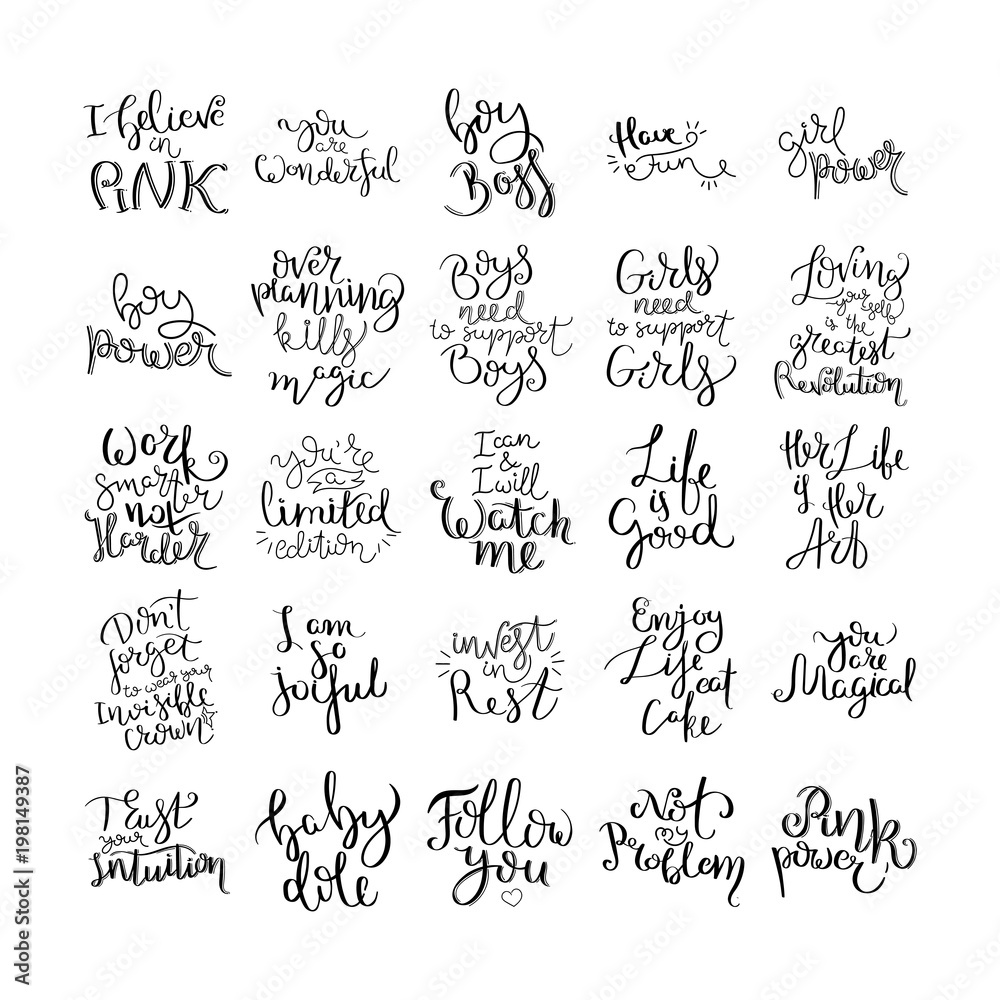 I believe
in
PINK
you
are
Wonderful
boy
Boss
Have
Fun
girl
power
boy
power
over
planning
kills
magic
Boys
need
to support
Boys
Girls
need
to support
Girls
Loving
your self
is the
greatest
Revolution
Work
smarter
not
Harder
you're
a
limited
edition
I can
&
I will
Watch
me
Life
is
Good
Her Life
is Her
Art
Don't
forget
to wear your
Invisible
crown
I am
so
joiful
invest
in
Rest
Enjoy
Life eat
Cake
you
are
Magical
Trust
your
Intuition
baby
dole
Follow
you
Not
my
Problem
Pink
power
Adobe Stock | #198149387